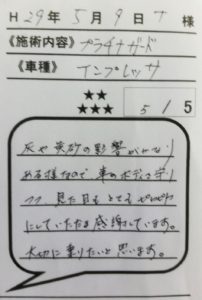 H 29年 5月 9日 T 様
《施術内容》 プラチナガード
《車種》 インプレッサ
★★
★★★
5 / 5
灰や黄砂の影響がかなり
ある様なので車のボディコーデ
見た目もとてもピカピカ
にしていただき感謝しています。
大切に乗りたいと思います。